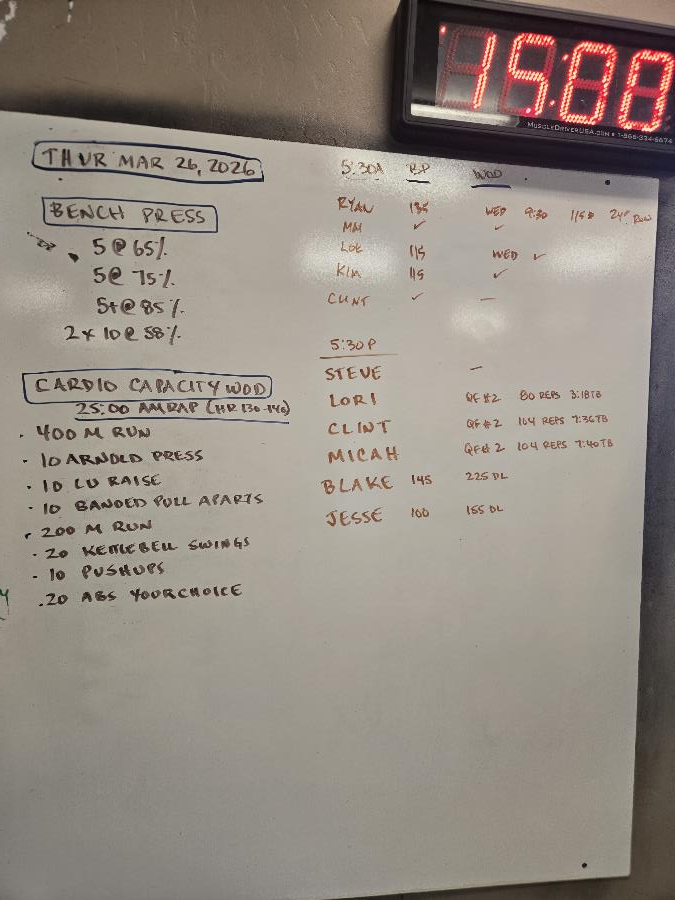 15:00
MUSCLEDRIVERUSA.COM • 1-888-324-5674
THUR MAR 26, 2026
BENCH PRESS
5 @ 65%
5 @ 75%
5+ @ 85%
2 x 10 @ 58%
CARDIO CAPACITY WOD
25:00 AMRAP (HR 130-140)
· 400 M RUN
· 10 ARNOLD PRESS
· 10 LU RAISE
· 10 BANDED PULL APARTS
· 200 M RUN
· 20 KETTLEBELL SWINGS
· 10 PUSHUPS
· 20 ABS YOUR CHOICE
5:30A BP WOD
RYAN 135 WED 9:30 115# RUN
✓ ✓
115 WED ✓
KIM 115 ✓
CLINT ✓ —
5:30P
STEVE —
LORI QF#2 80 REPS 3:18TB
CLINT QF#2 104 REPS 7:36TB
MICAH QF#2 104 REPS 7:40TB
BLAKE 145 225 DL
JESSE 100 155 DL